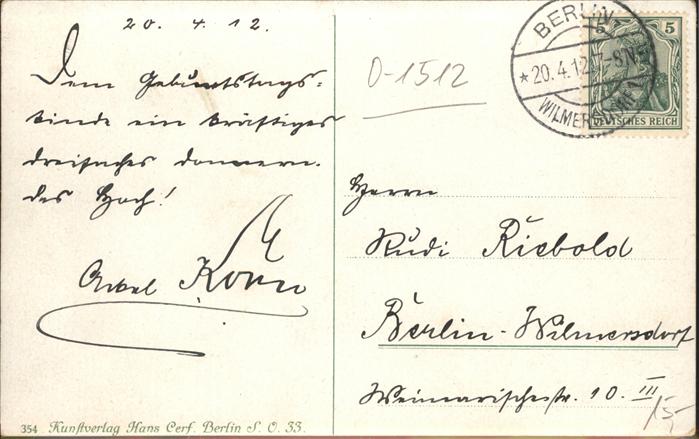 20. 4. 12.
Dem Geburtstags=
kinde ein kräftiges
dreifaches donnern-
des Hoch!
Korn
D-1512
BERLIN
*20.4.12.7-8N*
WILMERSDORF 1
5 5
DEUTSCHES REICH
Herrn
Rudi Riebold
Berlin-Wilmersdorf
Weimarischestr. 10. III
15,-
354 Kunstverlag Hans Cerf. Berlin S. O. 33.